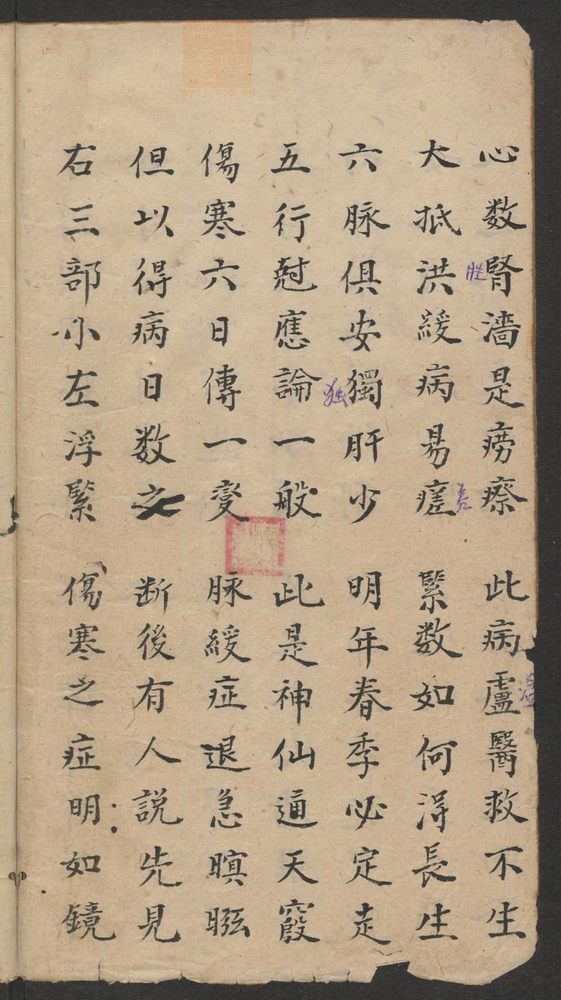 心数腎濇是痨瘵　此病盧醫救不生
大抵洪緩病易瘥　緊数如何淂長生
六脉俱安獨肝少　明年春季必定走
五行尅應論一般　此是神仙通天竅
傷寒六日傳一变　脉緩症退急暝
但以得病日数之　断後有人説先見
右三部小左浮緊　傷寒之症明如鏡